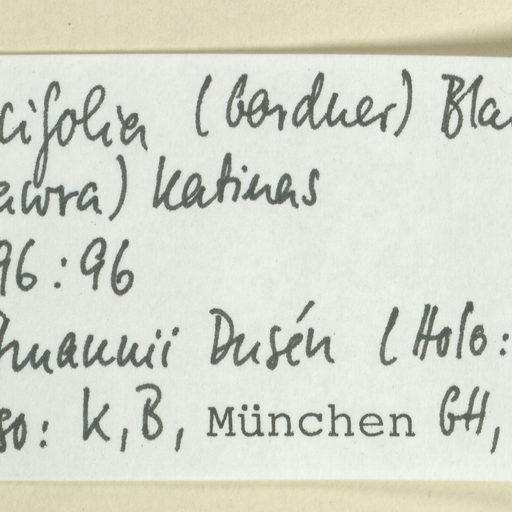 cifolia (Gardner) Bla
awra) Katinas
96:96
hmannii Dusén (Holo:
so: K, B, München GH,